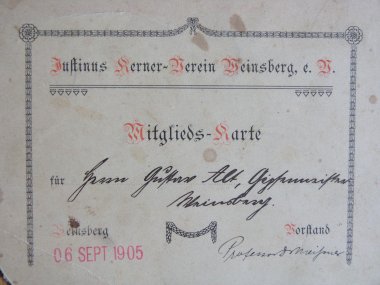 Justinus Kerner-Verein Weinsberg, e. V.
Mitglieds-Karte
für Herrn Gustav Alt, Gipsermeister
Weinsberg.
Weinsberg Vorstand
06 SEPT 1905 Professor Dr Meißner